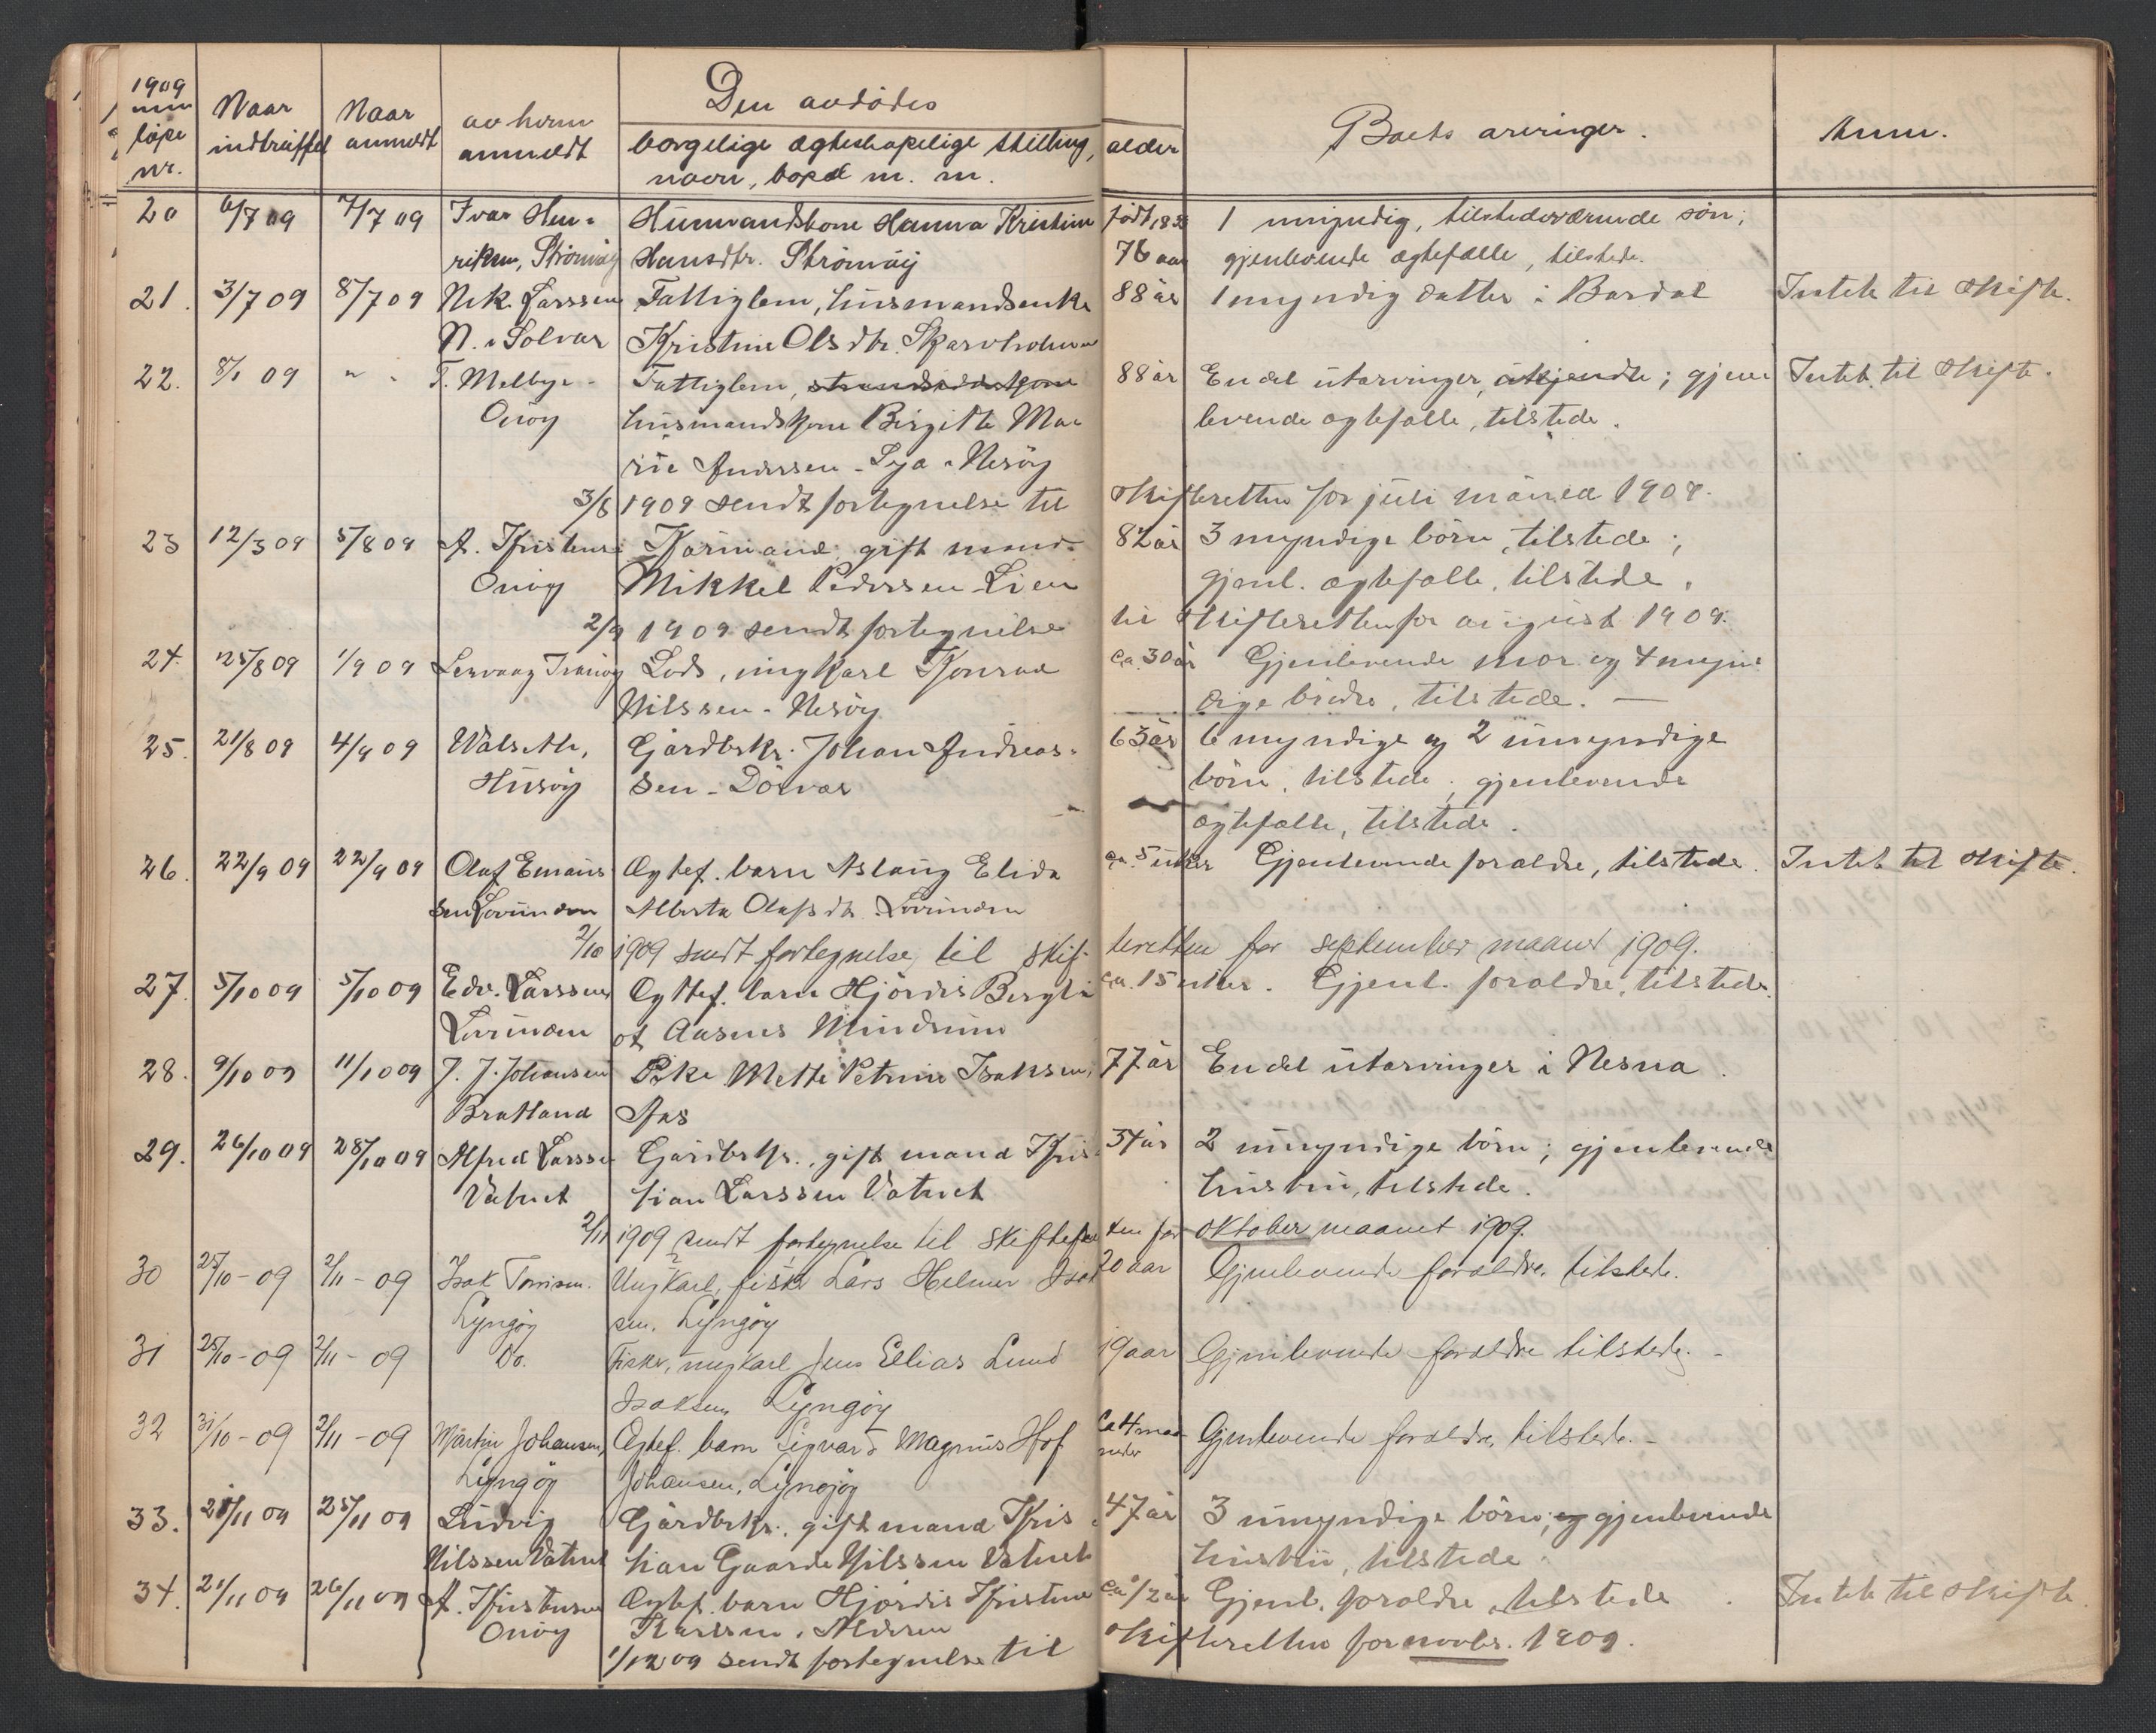 1909 Naar Naar av hvem Den avdødes Boets arvinger. Anm.
løpe indtruffet anmeldt anmeldt borgelige ægteskapelige stilling, alder
nr. navn, bopæl m. m.
20 6/7 09 7/7 09 Ivar Hen- Husmandskone Hanna Kristine født 1833 1 umyndig, tilstedeværende søn;
riksen, Strømøy Hansdtr. Strømøy 76 aar gjenlevende ægtefælle, tilstede.
21. 3/7 09 8/7 09 Nik. Larssen Fattiglem, husmandsenke 88 år 1 myndig datter i Bardal Intet til skifte.
N. Solvær Kristine Olsdtr. Skarvholmen
22. 8/1 09 " " T. Melbye- Fattiglem, 88 år En del utarvinger, ; gjen- Intet til skifte.
Onøy husmandskone Birgitte Ma- levende ægtefælle, tilstede.
rie Anderssen - Nesøy
3/8 1909 sendt fortegnelse til skifteretten for juli måned 1909.
23 12/3 09 5/8 09 A. Kristensen Kårmand, gift mand 82 år 3 myndige børn, tilstede;
Onøy Mikkel Pedersen Lien gjenl. ægtefælle, tilstede.
2/9 1909 sendt fortegnelse til skifteretten for august 1909.
24. 25/8 09 1/9 09 Lervaag Trænøy Lods, ungkarl Konrad ca. 30 år Gjenlevende mor og 4 myn-
Nilssen - Nesøy dige brødre, tilstede. —
25. 21/8 09 4/9 09 Walseth, Gårdbrkr. Johan Andreas- 63 år 6 myndige og 2 umyndige
Husøy sen - Dørvær børn, tilstede; gjenlevende
ægtefælle, tilstede.
26. 22/9 09 22/9 09 Olaf Emaus- Ægtef. barn Aslaug Elida ca. 5 uker Gjenlevende foreldre, tilstede. Intet til skifte.
sen Lovunden Alberta Olafsdtr. Lovunden
2/10 1909 sendt fortegnelse til skifteretten for september maaned 1909.
27. 5/10 09 5/10 09 Edv. Larssen Ægtef. barn Hjördis Bergli- ca. 15 uker. Gjenl. foreldre, tilstede.
Lovunden ot Aasnes
28. 9/10 09 11/10 09 J. J. Johansen Pike Mette Petrine Isaksen, 77 år En del utarvinger i Nesna.
Bratland Aas
29. 26/10 09 28/10 09 Alfred Larssen Gårdbrkr., gift mand Kris- 34 år 2 umyndige børn; gjenlevende
Vatnet tian Larssen Vatnet hustru, tilstede.
2/11 1909 sendt fortegnelse til skifteretten for oktober maanet 1909.
30 25/10 - 09 2/11 - 09 Isak Ungkarl, fisker Lars Helmer Isak 20 aar Gjenlevende forældre, tilstede.
Lyngøy sen. Lyngøy
31 25/10 - 09 2/11 - 09 Do. Fisker, ungkarl Jens Ellias Lund 19 aar Gjenlevende forældre tilstede. -
Isaksen, Lyngøy
32 31/10 - 09 2/11 - 09 Martin Johansen, Ægtef. barn Sigvard Magnus Hof Ca 4 maa- Gjenlevende forældre, tilstede. -
Lyngøy Johansen, Lyngøy neder
33. 21/11 09 25/11 09 Ludvig Gårdbrkr., gift mand Kris- 47 år 3 umyndige børn; og gjenlevende
Nilssen Vatnet tian Gaarde Nilssen Vatnet hustru, tilstede.
34. 21/11 09 26/11 09 A. Kristensen Ægtef. barn Hjördis Kristine ca 1/2 år Gjenl. foreldre, tilstede. Intet til skifte.
Onøy Karlssen, Aldersen
1/12 09 sendt fortegnelse til skifteretten for novbr. 1909.